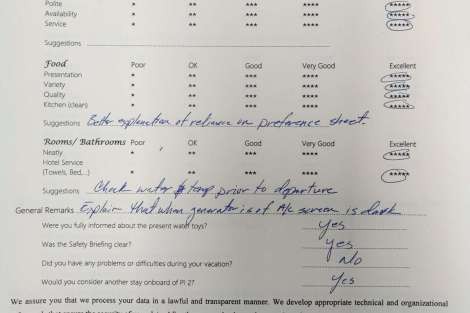 Polite * ** *** **** *****
Availability * ** *** **** *****
Service * ** *** **** *****
Suggestions
Food Poor OK Good Very Good Excellent
Presentation * ** *** **** *****
Variety * ** *** **** *****
Quality * ** *** **** *****
Kitchen (clean) * ** *** **** *****
Suggestions Better explanation of reliance on preference sheet.
Rooms/ Bathrooms Poor OK Good Very Good Excellent
Neatly * ** *** **** *****
Hotel Service
(Towels, Bed,..) * ** *** **** *****
Suggestions Check water temp prior to departure
General Remarks Explain that when generator is of A/c screen is dark
Were you fully informed about the present water toys? yes
Was the Safety Briefing clear? yes
Did you have any problems or difficulties during your vacation? No
Would you consider another stay onboard of PI 2? Yes
We assure you that we process your data in a lawful and transparent manner. We develop appropriate technical and organizational